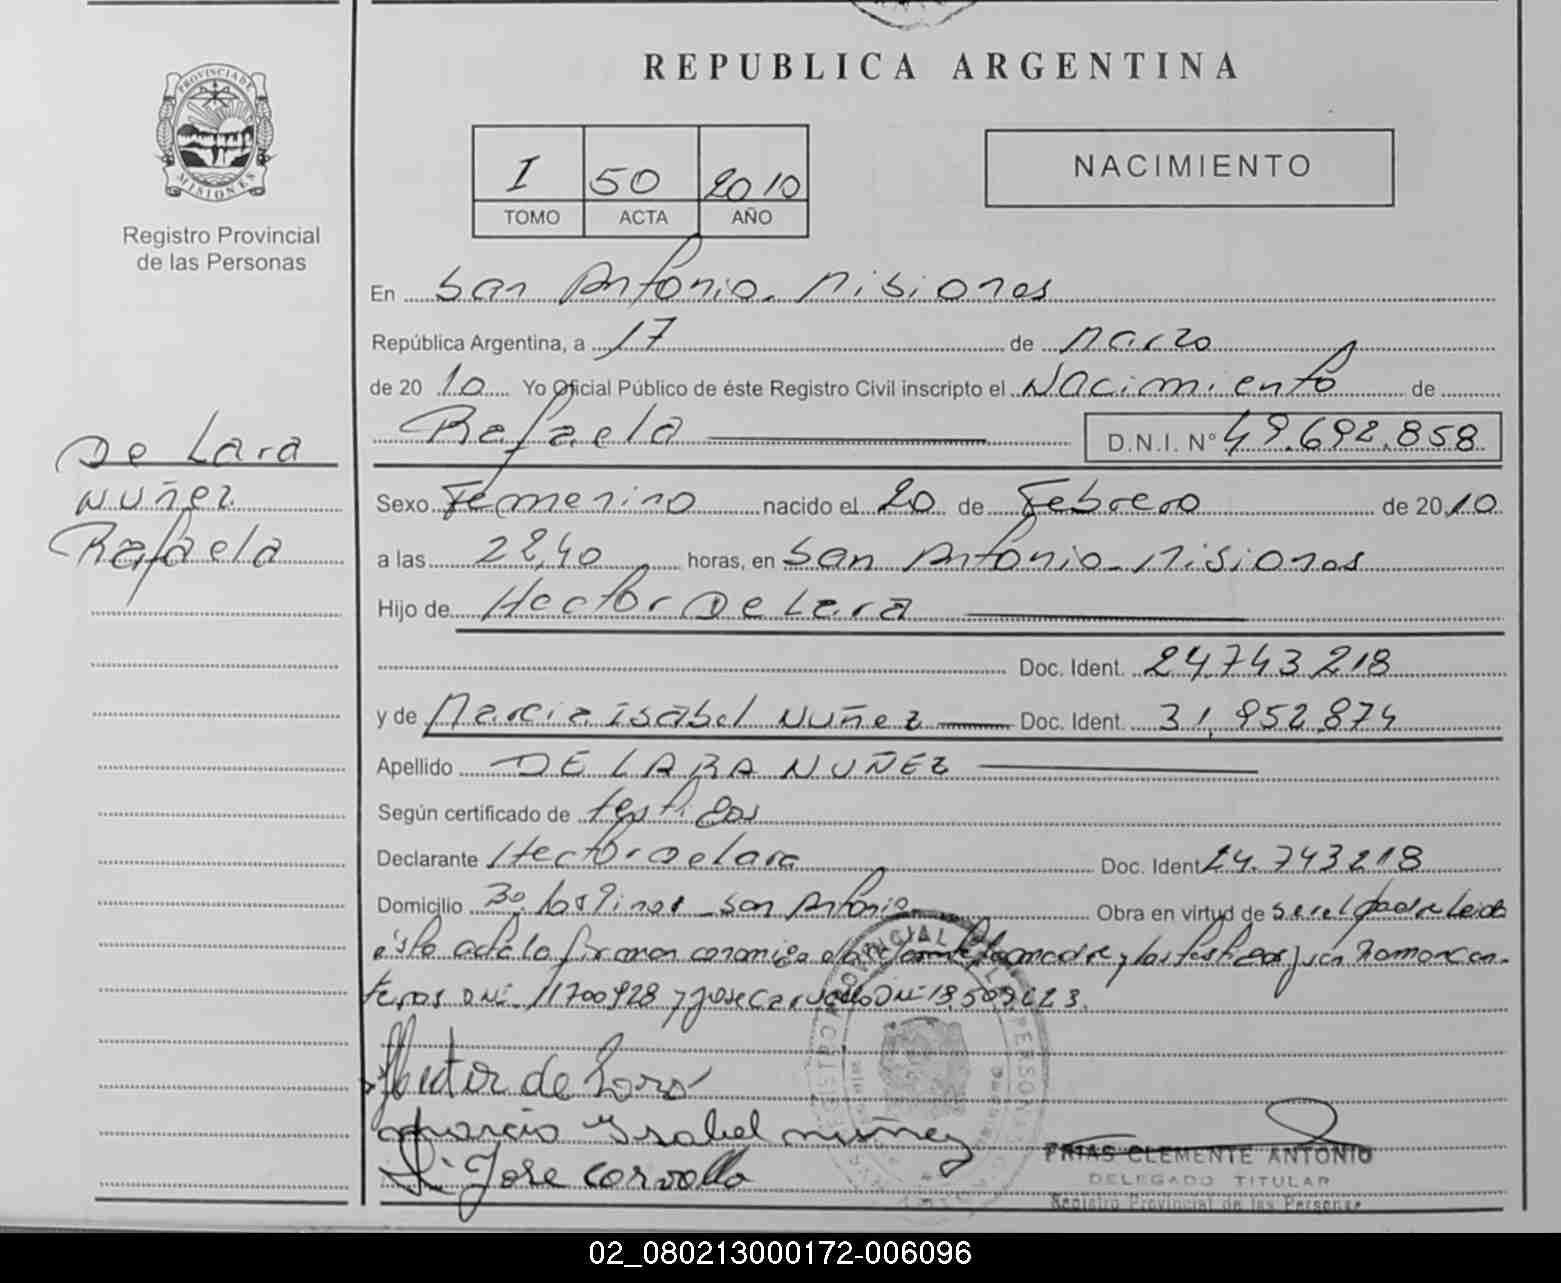 REPUBLICA ARGENTINA
PROVINCIA DE
MISIONES
Registro Provincial
de las Personas
I 50 2010
TOMO ACTA AÑO
NACIMIENTO
En San Antonio. Misiones
República Argentina, a 17 de Marzo
de 20 10 Yo Oficial Público de éste Registro Civil inscripto el Nacimiento de
Rafaela D.N.I. N° 49.692.858
De Lara
Nuñez
Rafaela
Sexo Femenino nacido el 20 de Febrero de 20 10
a las 22,40 horas, en San Antonio - Misiones
Hijo de Hector De Lara
Doc. Ident. 24.743.218
y de Marcia Isabel Nuñez Doc. Ident. 31.952.874
Apellido DE LARA NUÑEZ
Según certificado de testigos
Declarante Hector De Lara Doc. Ident 24.743218
Domicilio Bº. Los Pinos - San Antonio Obra en virtud de ser el padre Leida
esta acta la firman conmigo el la madre y los testigos Ramon Con-
teras DNI 11700928 y Jose Carvallo DNI
Hector de Lara
Marcia Ysabel nuñez
Jose Corvallo
FRIAS CLEMENTE ANTONIO
DELEGADO TITULAR
Registro Provincial de las Personas
02_080213000172-006096